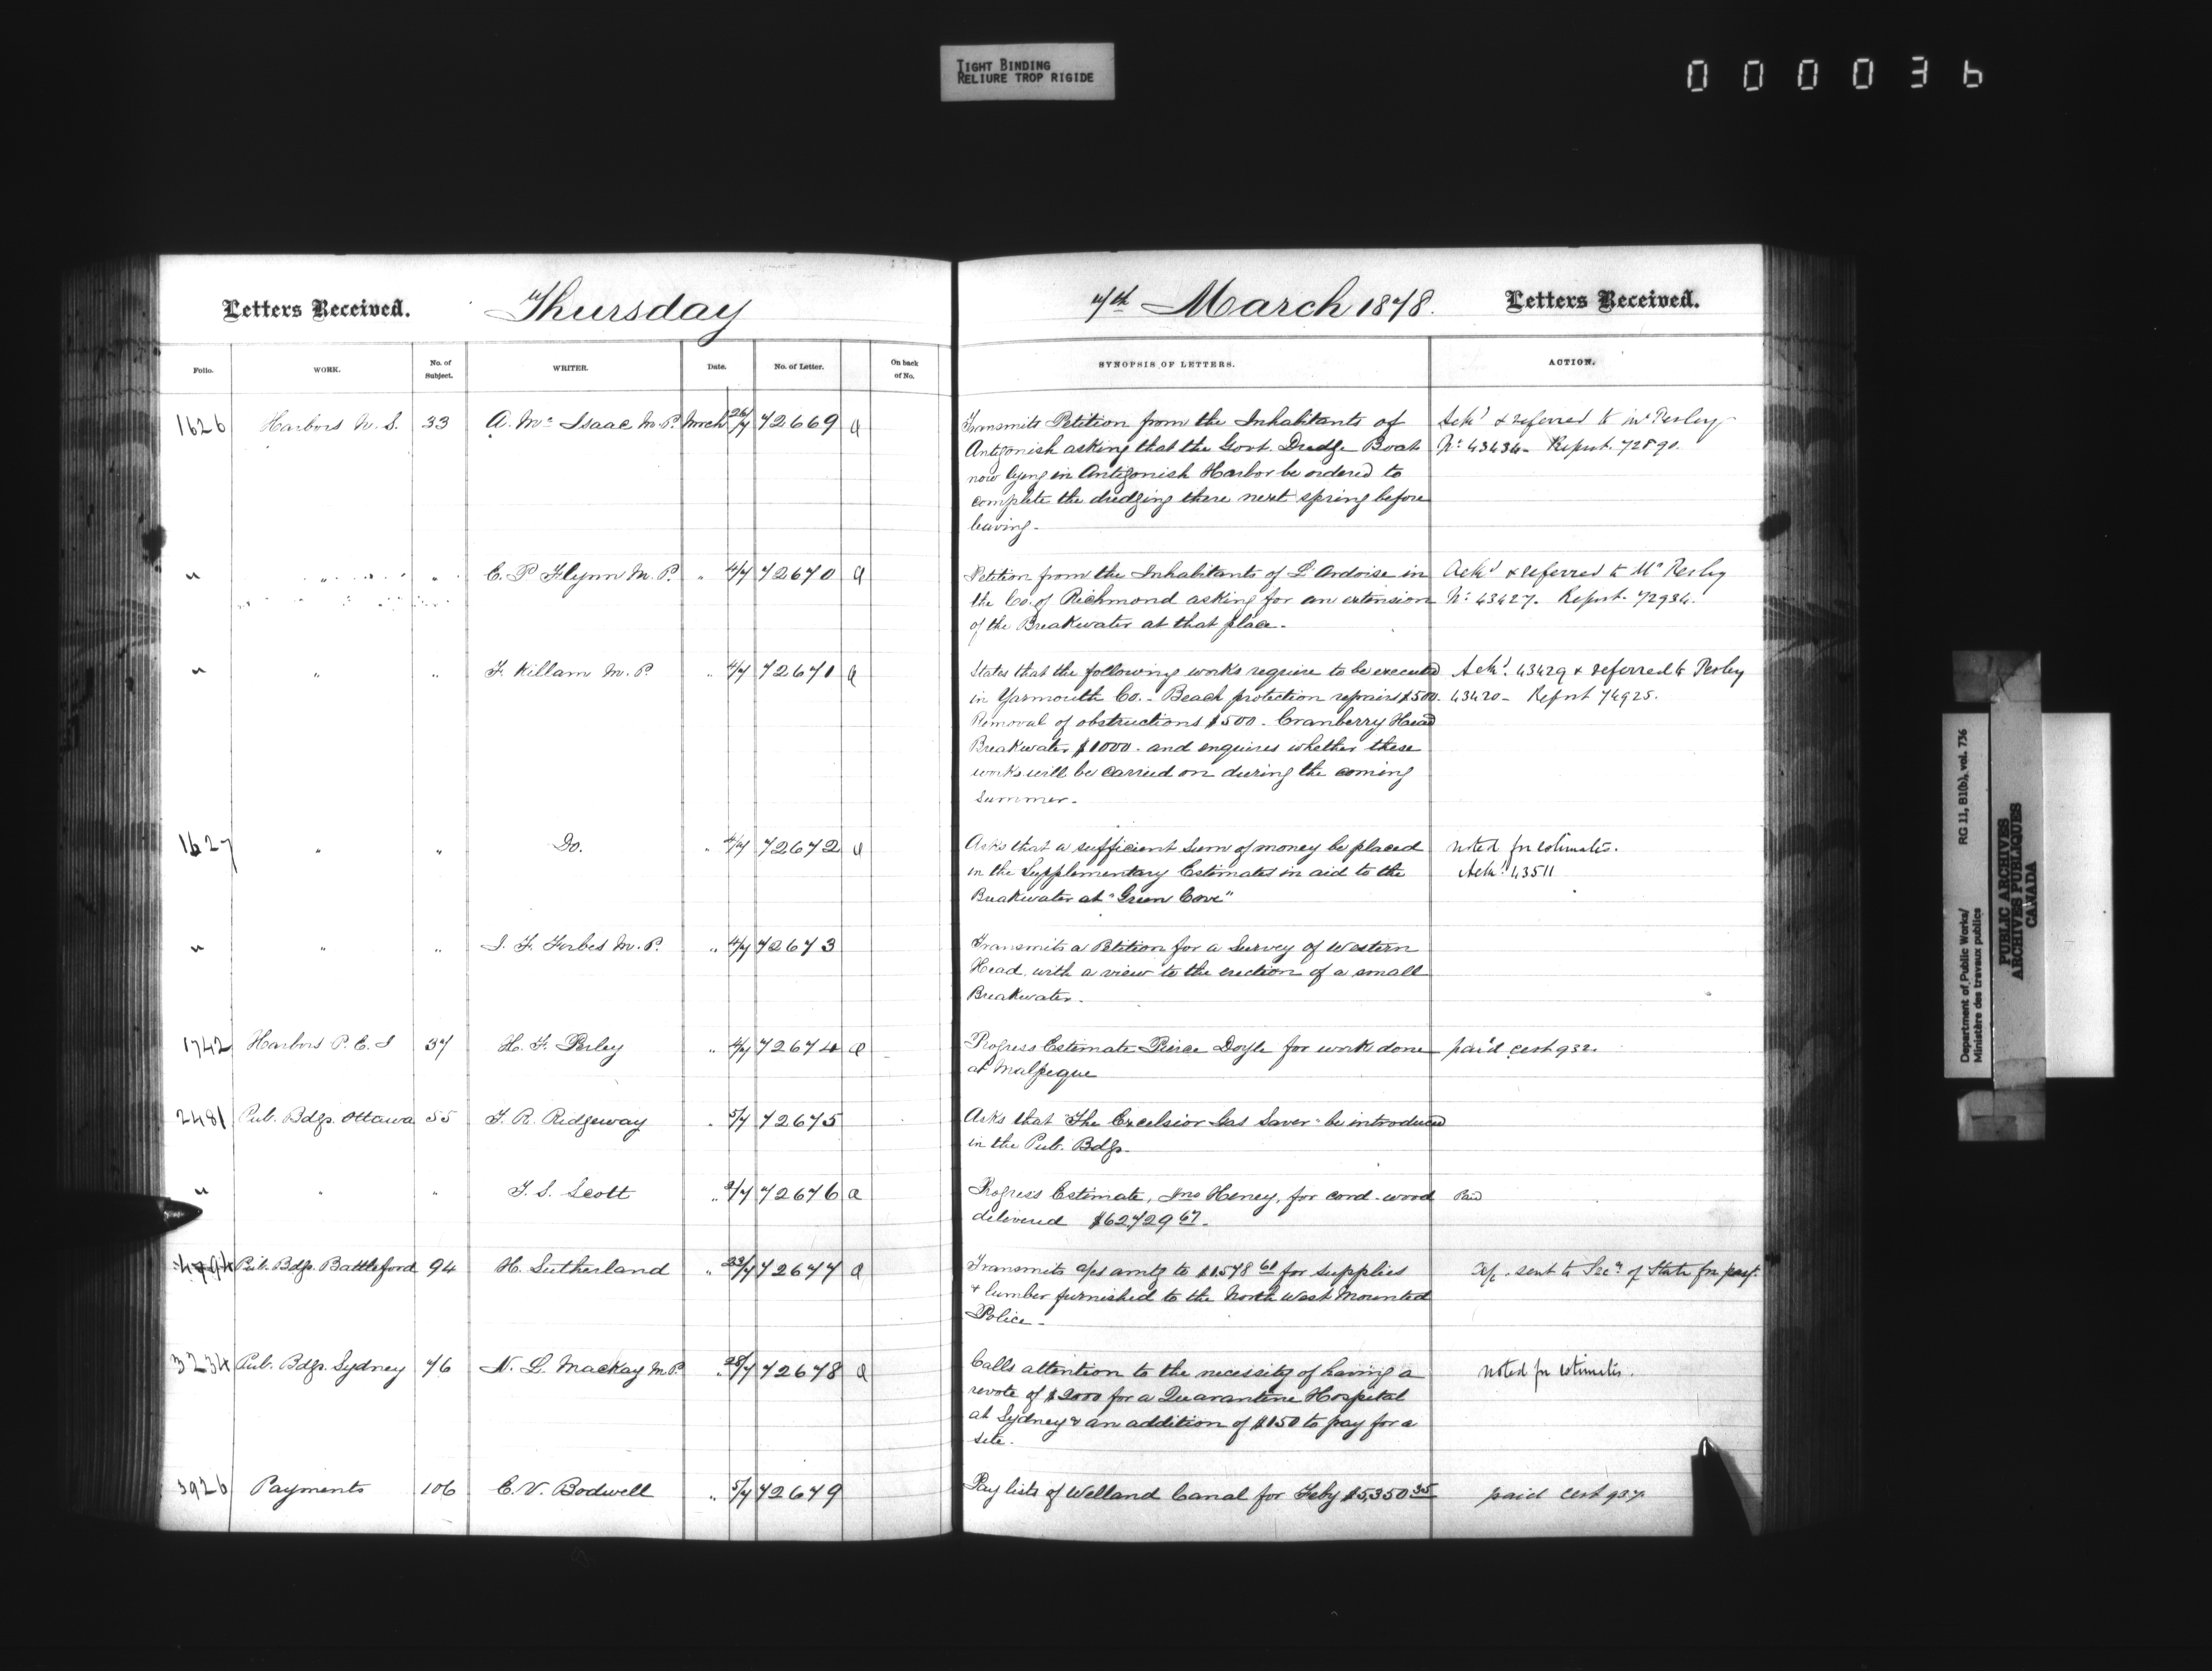 TIGHT BINDING
RELIURE TROP RIGIDE
000036
Letters Received. Thursday 7th March 1878. Letters Received.
Folio. WORK. No. of Subject. WRITER. Date. No. of Letter. On back of No. SYNOPSIS OF LETTERS. ACTION.
1626 Harbors N. S. 33 A. Mc Isaac M. P. Mrch 26/7 72669 a Transmits Petition from the Inhabitants of Ackd & referred to Mr Perley
Antigonish asking that the Govt. Dredge Boat No 43434 - Report. 72890.
now lying in Antigonish Harbor be ordered to
complete the dredging there next spring before
leaving -
" " " E. P. Flynn M. P. " 4/7 72670 a Petition from the Inhabitants of L'Ardoise in Ackd & referred to Mr Perley
the Co. of Richmond asking for an extension No 43427. Report. 72934.
of the Breakwater at that place -
" " " F. Killam M. P. " 4/7 72671 a States that the following works require to be executed Ackd. 43429 & referred to Perley
in Yarmouth Co. - Beach protection repairs $500. 43420 - Report 74925.
Removal of obstructions $500 - Cranberry Head
Breakwater $1000. and enquires whether these
works will be carried on during the coming
summer -
1627 " " Do. " 4/7 72672 a Asks that a sufficient sum of money be placed noted for estimates.
in the Supplementary Estimates in aid to the Ackd 43511
Breakwater at "Green Cove"
" " " J. F. Forbes M. P. " 4/7 72673 Transmits a Petition for a Survey of Western
Head with a view to the erection of a small
Breakwater -
1742 Harbors P. E. I 37 H. F. Perley " 4/7 72674 a Progress Estimate Pierce Doyle for work done paid cert 932.
at Malpeque
2481 Pub. Bdgs. Ottawa 55 T. R. Ridgeway " 5/7 72675 Asks that "The Excelsior Gas Saver" be introduced
in the Pub. Bdgs -
" " " T. S. Scott " 2/7 72676 a Progress Estimate, Jno Heney, for cord-wood Paid
delivered $62729 67 -
Pub. Bdgs. Battleford 94 H. Sutherland " 23/7 72677 a Transmits a/cs amtg to $1578 61 for supplies a/c. sent to Secy of State for payt.
& lumber furnished to the North West Mounted
Police -
3234 Pub. Bdgs. Sydney 76 N. L. MacKay M. P. " 28/7 72678 a Calls attention to the necessity of having a noted for estimates.
revote of $2000 for a Quarantine Hospital
at Sydney & an addition of $150 to pay for a
site.
3926 Payments 106 E. V. Bodwell " 5/7 72679 Pay lists of Welland Canal for Feby $5,350 35 paid cert 937.
Department of Public Works/ RG 11, B1(b), vol. 736
Ministère des travaux publics
PUBLIC ARCHIVES
ARCHIVES PUBLIQUES
CANADA